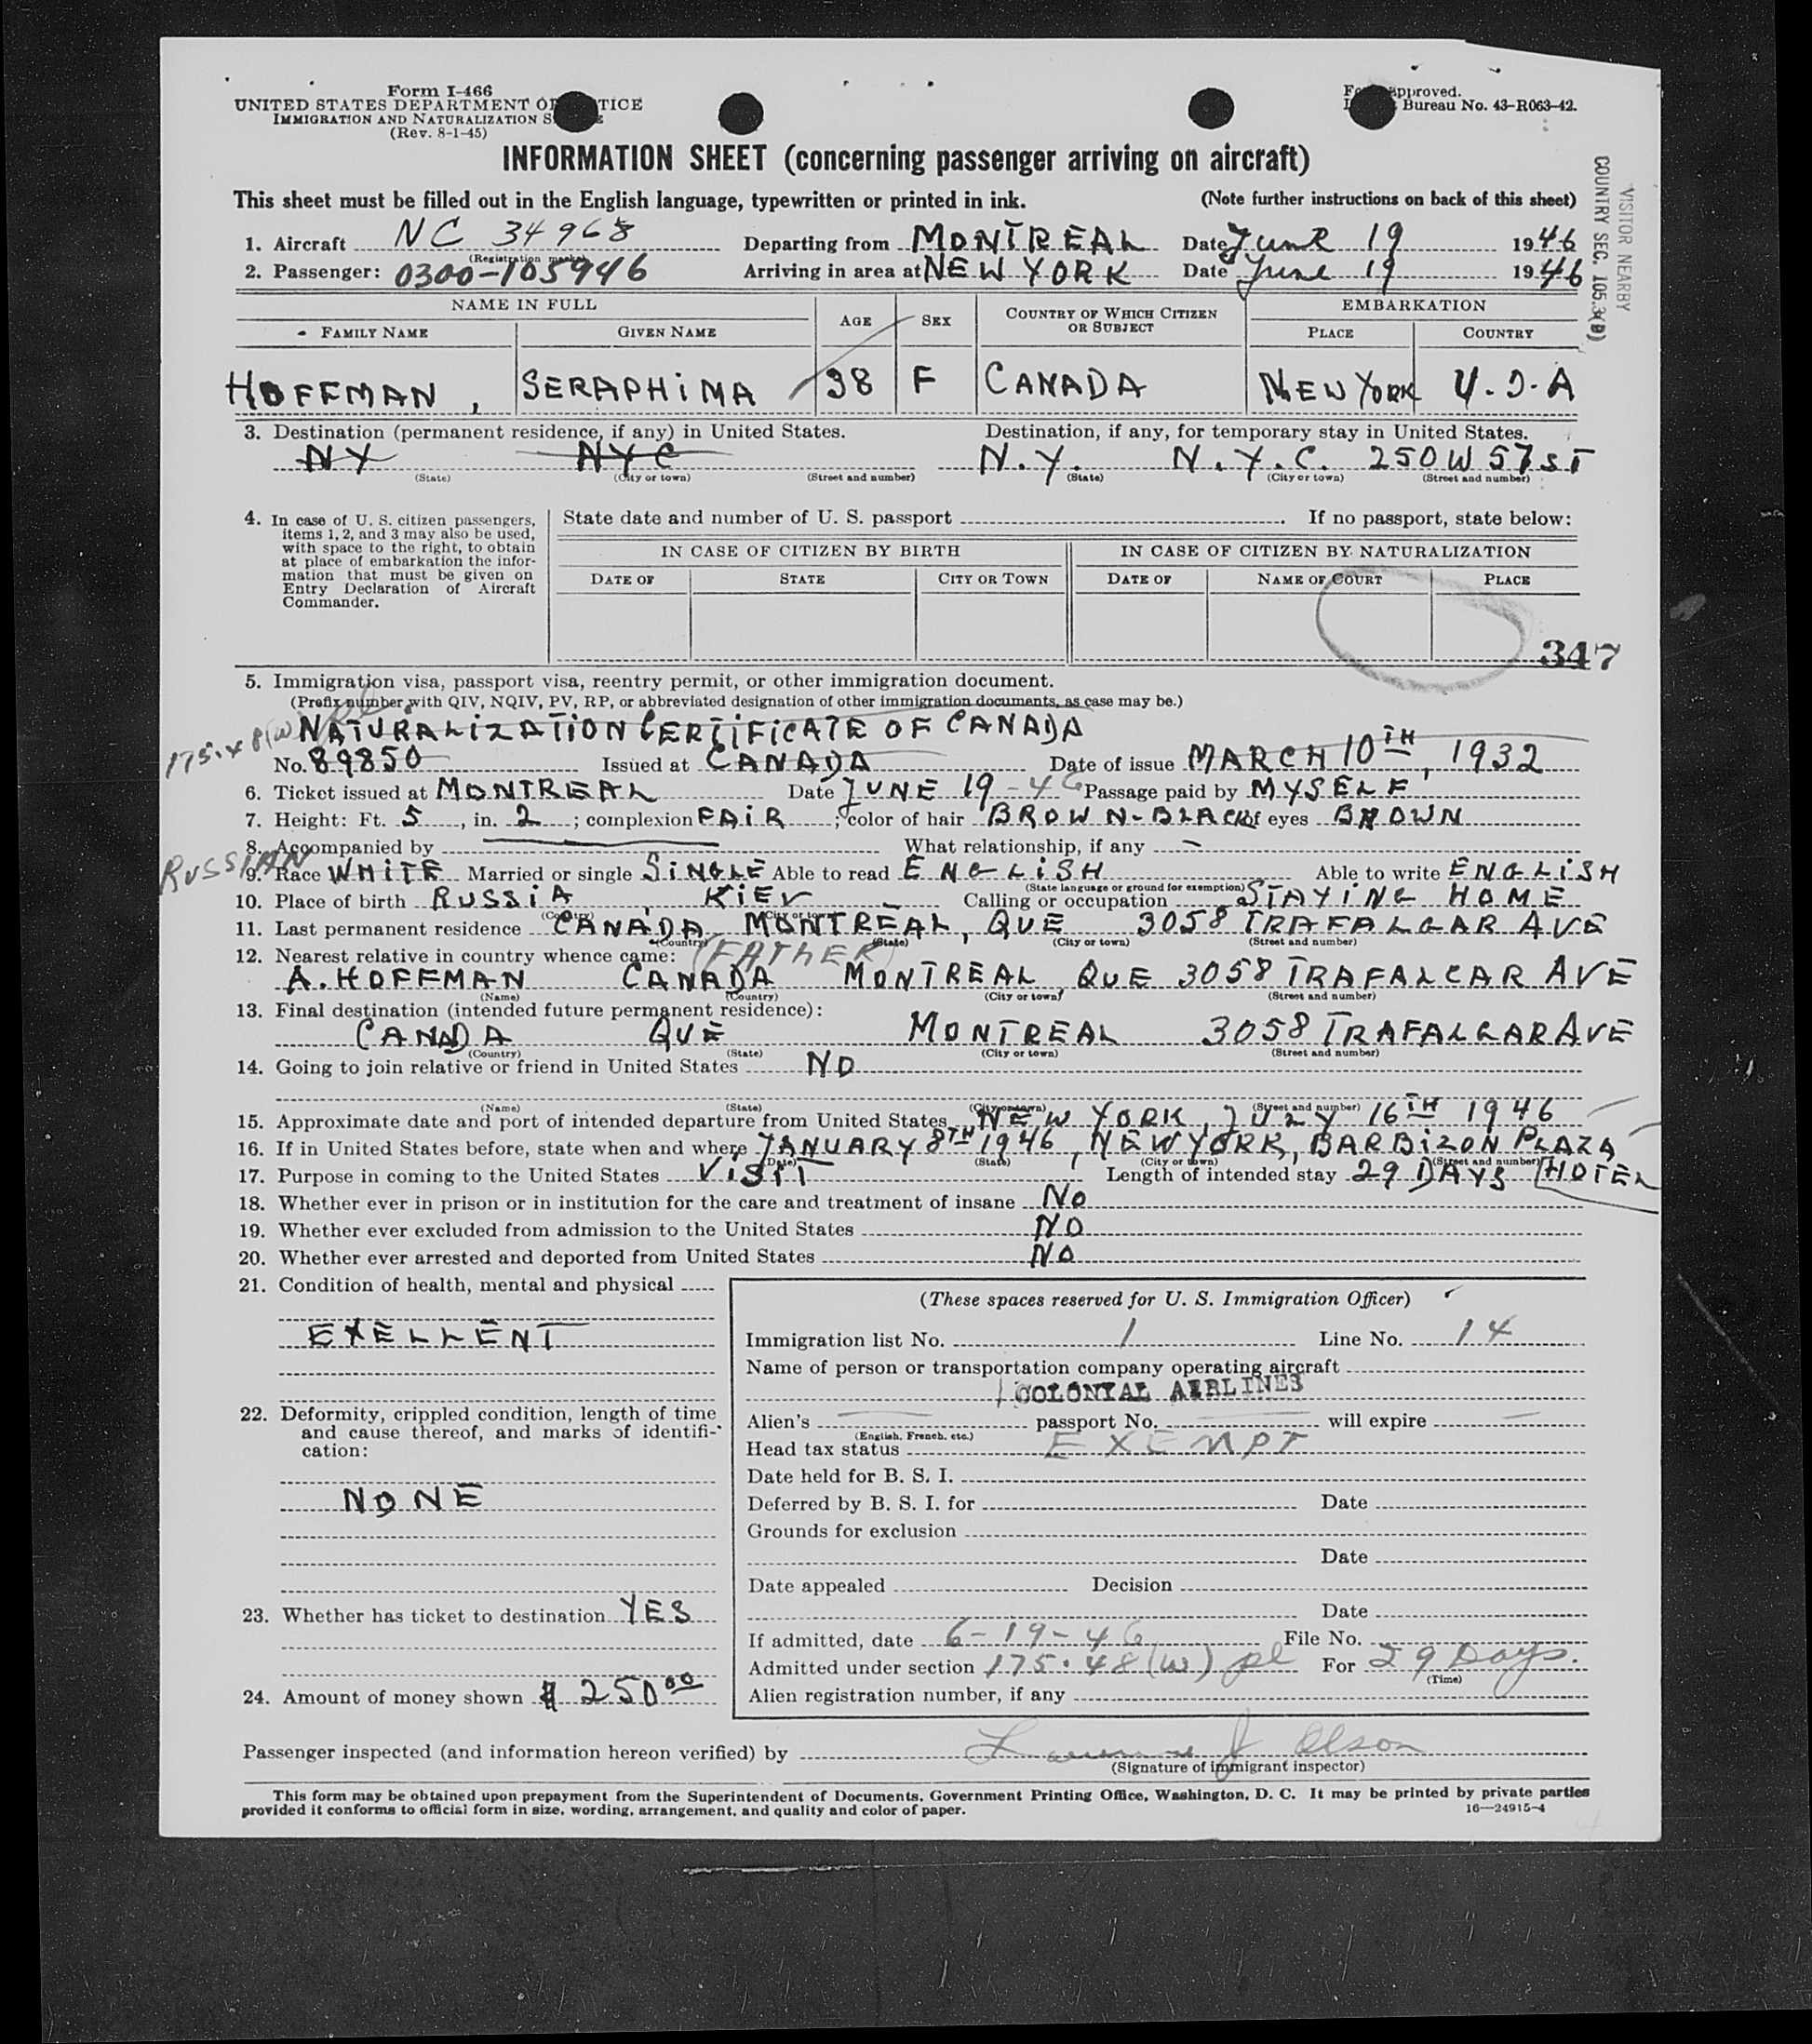 Form I-466
UNITED STATES DEPARTMENT OF JUSTICE
IMMIGRATION AND NATURALIZATION SERVICE
(Rev. 8-1-45)
Form approved.
Bureau No. 43-R063-42.
INFORMATION SHEET (concerning passenger arriving on aircraft)
This sheet must be filled out in the English language, typewritten or printed in ink. (Note further instructions on back of this sheet)
VISITOR NEARBY
COUNTRY SEC. 105.3(B)
1. Aircraft NC 34968 Departing from MONTREAL Date JUNE 19 1946
(Registration marks)
2. Passenger: 0300-105946 Arriving in area at NEW YORK Date June 19 1946
NAME IN FULL AGE SEX COUNTRY OF WHICH CITIZEN OR SUBJECT EMBARKATION
FAMILY NAME GIVEN NAME PLACE COUNTRY
HOFFMAN, SERAPHIMA 38 F CANADA NEW YORK U.S.A
3. Destination (permanent residence, if any) in United States. Destination, if any, for temporary stay in United States.
NY NYC N.Y. N.Y.C. 250 W 57 ST
(State) (City or town) (Street and number) (State) (City or town) (Street and number)
4. In case of U. S. citizen passengers,
items 1, 2, and 3 may also be used,
with space to the right, to obtain
at place of embarkation the infor-
mation that must be given on
Entry Declaration of Aircraft
Commander.
State date and number of U. S. passport . If no passport, state below:
IN CASE OF CITIZEN BY BIRTH IN CASE OF CITIZEN BY NATURALIZATION
DATE OF STATE CITY OR TOWN DATE OF NAME OF COURT PLACE
347
5. Immigration visa, passport visa, reentry permit, or other immigration document.
(Prefix number with QIV, NQIV, PV, RP, or abbreviated designation of other immigration documents, as case may be.)
NATURALIZATION CERTIFICATE OF CANADA
No. 89850 Issued at CANADA Date of issue MARCH 10TH, 1932
6. Ticket issued at MONTREAL Date JUNE 19-46 Passage paid by MYSELF
7. Height: Ft. 5, in. 2; complexion FAIR; color of hair BROWN-BLACK of eyes BROWN
8. Accompanied by What relationship, if any -
RUSSIAN
9. Race WHITE Married or single SINGLE Able to read ENGLISH Able to write ENGLISH
(State language or ground for exemption)
10. Place of birth RUSSIA, KIEV Calling or occupation STAYING HOME
(Country) (City or town)
11. Last permanent residence CANADA MONTREAL, QUE 3058 TRAFALGAR AVE
(Country) (State) (City or town) (Street and number)
12. Nearest relative in country whence came: (FATHER)
A. HOFFMAN CANADA MONTREAL, QUE 3058 TRAFALGAR AVE
(Name) (Country) (City or town) (Street and number)
13. Final destination (intended future permanent residence):
CANADA QUE MONTREAL 3058 TRAFALGAR AVE
(Country) (State) (City or town) (Street and number)
14. Going to join relative or friend in United States NO
(Name) (State) (City or town) (Street and number)
15. Approximate date and port of intended departure from United States NEW YORK, JULY 16TH 1946
16. If in United States before, state when and where JANUARY 8TH 1946, NEW YORK, BARBIZON PLAZA
(Date) (State) (City or town) (Street and number)
17. Purpose in coming to the United States VISIT Length of intended stay 29 DAYS HOTEL
18. Whether ever in prison or in institution for the care and treatment of insane NO
19. Whether ever excluded from admission to the United States NO
20. Whether ever arrested and deported from United States NO
21. Condition of health, mental and physical
EXELLENT
22. Deformity, crippled condition, length of time
and cause thereof, and marks of identifi-
cation:
NONE
23. Whether has ticket to destination YES
24. Amount of money shown $ 250 00
(These spaces reserved for U. S. Immigration Officer)
Immigration list No. 1 Line No. 14
Name of person or transportation company operating aircraft
COLONIAL AIRLINES
Alien's passport No. will expire
(English, French, etc.)
Head tax status EXEMPT
Date held for B. S. I.
Deferred by B. S. I. for Date
Grounds for exclusion
Date
Date appealed Decision
Date
If admitted, date 6-19-46 File No.
Admitted under section 175.48(W) pl For 29 Days.
(Time)
Alien registration number, if any
Passenger inspected (and information hereon verified) by Lawrence J Olson
(Signature of immigrant inspector)
This form may be obtained upon prepayment from the Superintendent of Documents, Government Printing Office, Washington, D. C. It may be printed by private parties
provided it conforms to official form in size, wording, arrangement, and quality and color of paper. 16—24915-4